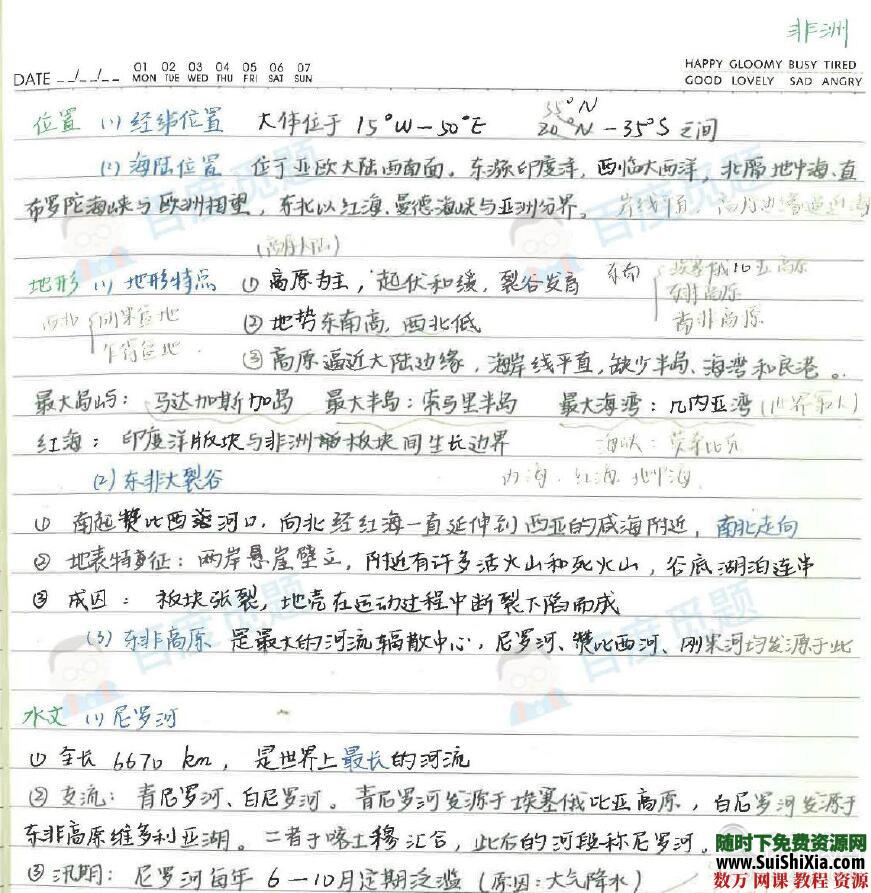 非洲
DATE _ _/_ _/_ _ 01 MON 02 TUE 03 WED 04 THU 05 FRI 06 SAT 07 SUN HAPPY GLOOMY BUSY TIRED
GOOD LOVELY SAD ANGRY
位置 (1) 经纬位置 大体位于 15°W—50°E 35°N 20°N—35°S 之间
(2) 海陆位置 位于亚欧大陆西南面。东濒印度洋,西临大西洋,北隔地中海、直
布罗陀海峡与欧洲相望,东北以红海、曼德海峡与亚洲分界。 岸线平直,
(高原大陆)
地形 (1) 地形特点 ① 高原为主,起伏和缓,裂谷发育 东南 埃塞俄比亚高原
东非高原
南非高原
西北 刚果盆地
乍得盆地
② 地势东南高,西北低
③ 高原逼近大陆边缘,海岸线平直,缺少半岛、海湾和良港。
最大岛屿:马达加斯加岛 最大半岛:索马里半岛 最大海湾:几内亚湾(世界最大)
红海:印度洋版块与非洲板块间生长边界 海峡:莫桑比克
内海:红海、地中海
(2) 东非大裂谷
① 南起赞比西河口,向北经红海一直延伸到西亚的咸海附近,南北走向
② 地表特征:两岸悬崖壁立,附近有许多活火山和死火山,谷底湖泊连串
③ 成因:板块张裂,地壳在运动过程中断裂下陷而成
(3) 东非高原 是最大的河流辐散中心,尼罗河、赞比西河、刚果河均发源于此
水文 (1) 尼罗河
① 全长 6670 km,是世界上最长的河流
② 支流:青尼罗河、白尼罗河。青尼罗河发源于埃塞俄比亚高原,白尼罗河发源于
东非高原维多利亚湖。二者于喀土穆汇合,此后的河段称尼罗河。
③ 汛期:尼罗河每年 6—10月定期泛滥(原因:大气降水)
百度觅题
百度觅题
百度觅题
百度觅题
随时下免费资源网
www.SuiShiXia.com
数万 网课 教程 资源